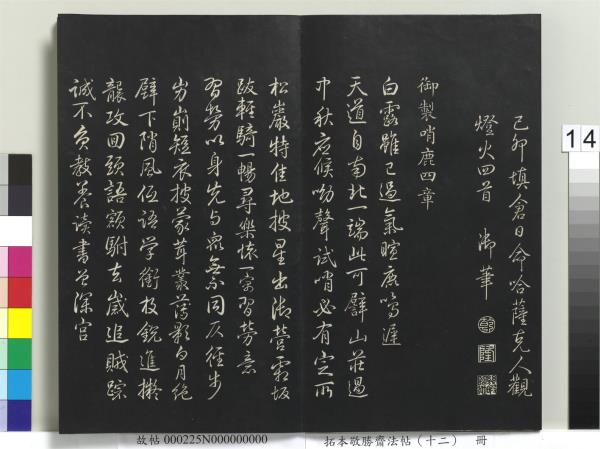 己卯填倉日命哈薩克人觀
燈火四首　御筆
御製哨鹿四章
白露雖已過氣暄鹿鳴遲
天道自南北一端此可譬山莊過
中秋應候呦聲試哨必有定所
松巖特佳地披星出御營霜坂
跋輕騎一暢尋樂懷一寓習勞意
習勞以身先與眾無同仄徑步
岃崱短衣披蒙茸叢薄影白月絶
壁下隋風伍語学銜枚銳進擬
襲攻回頭語額駙去歲追賊踪
誠不負教養读書益深宫
14
故帖 000225N000000000
拓本敬勝齋法帖（十二） 冊